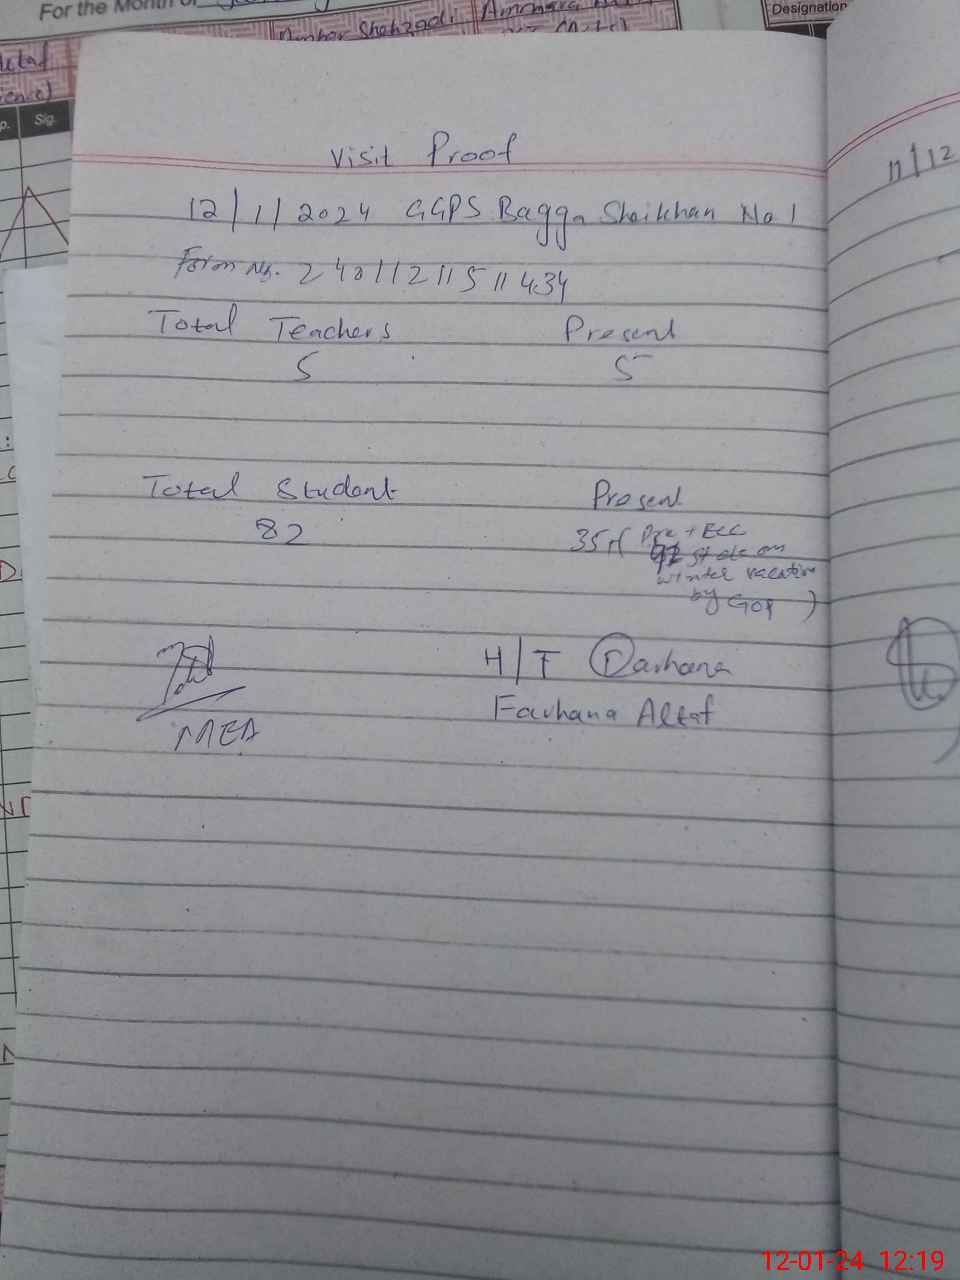 For the Month of
Designation
Altaf
Sig.
Visit Proof
11/12
12/1/2024 GGPS Bagga Sheikhan No 1
Form No. 24011211511434
Total Teachers Present
5 5
Total Student Present
82 35+( Pre + ECC
are on
winter vacation
by GOP )
H/T Farhana
Farhana Altaf
MEA
12-01-24 12:19